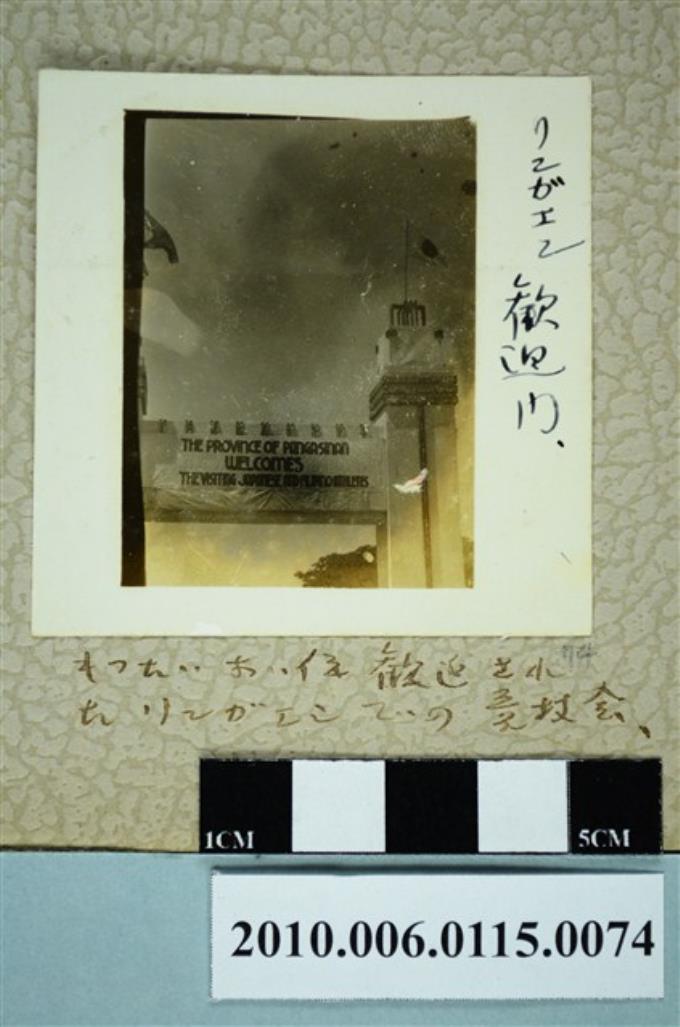 リンガエン 歓迎門、
THE PROVINCE OF PANGASINAN
WELCOMES
THE VISITING JAPANESE AND FILIPINO ATHLETES
もったいない位 歓迎され
た リンガエンでの 競技会、
1CM
5CM
2010.006.0115.0074